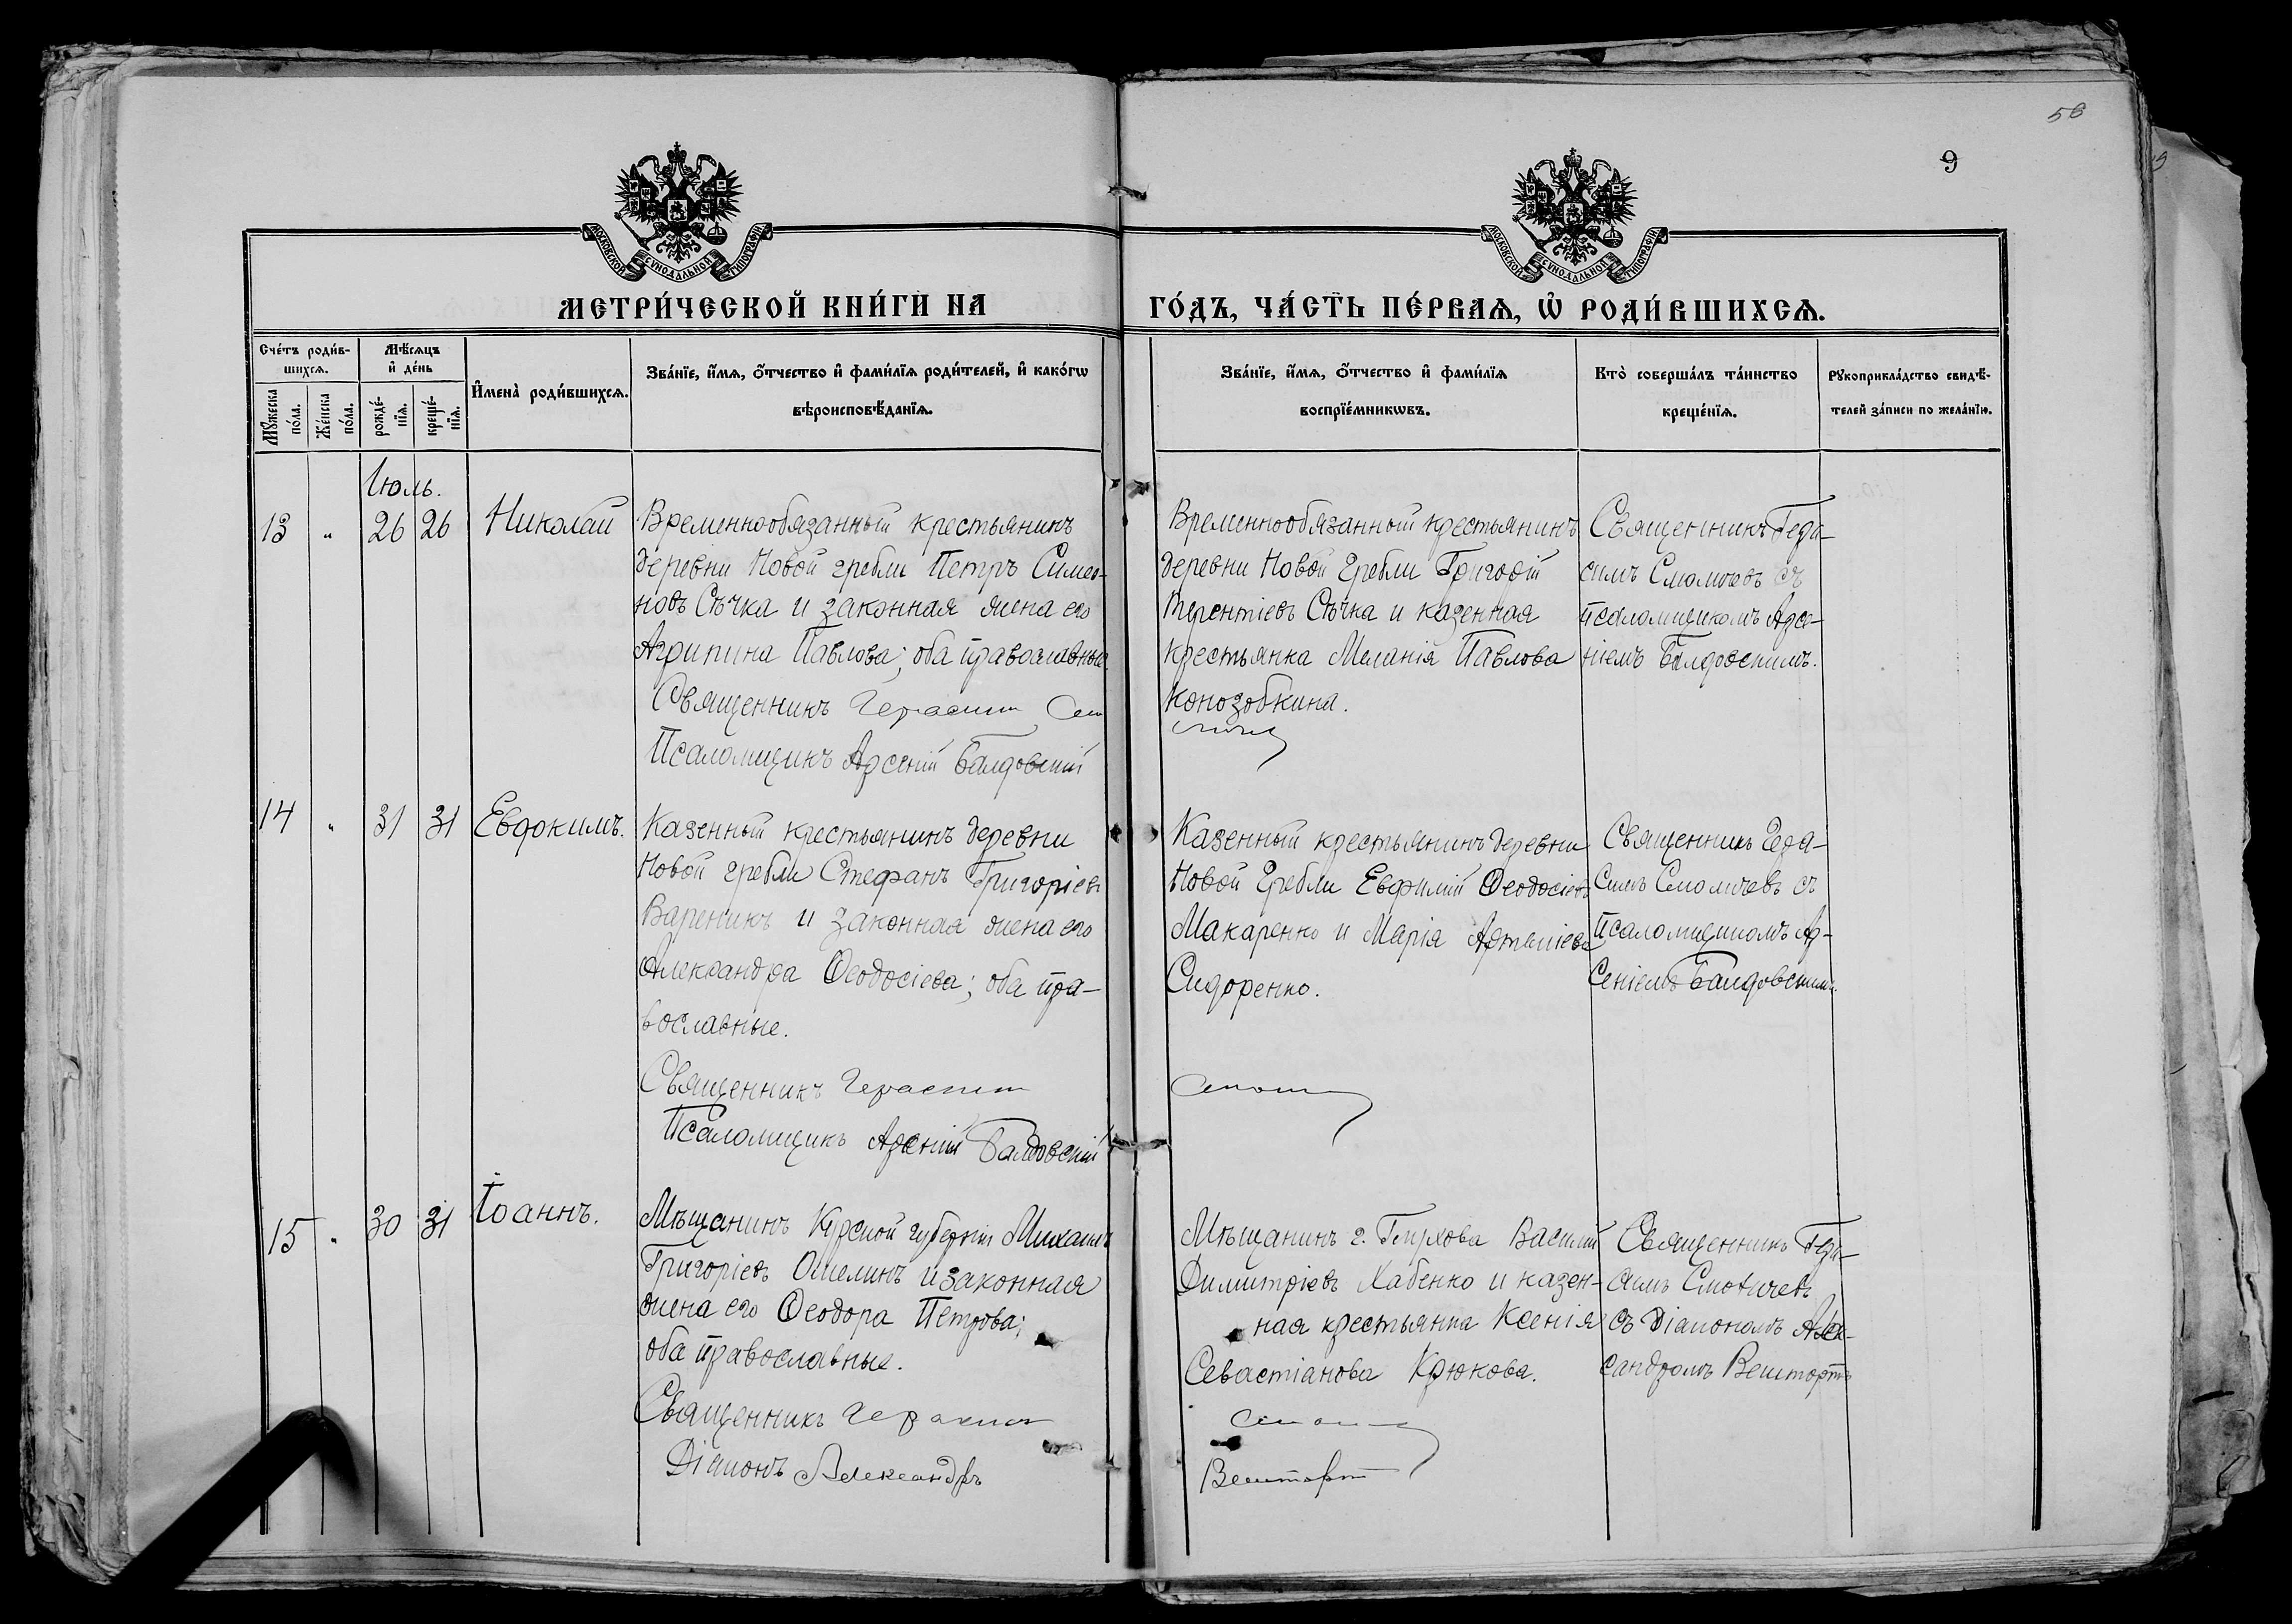 56
9
МОСКОВСКОЙ СѴНОДАЛЬНОЙ ТИПОГРАФІИ
МОСКОВСКОЙ СѴНОДАЛЬНОЙ ТИПОГРАФІИ
МЕТРИ́ЧЕСКОЙ КНИ́ГИ НА
ГО́ДЪ, ЧА́СТЬ ПЕ́РВАѦ, Ѡ҆ РОДИ́ВШИХСѦ.
Сче́тъ роди́в-
шихсѧ.
Мѣ́сѧцъ
и҆ де́нь
И҆мена̀ роди́вшихсѧ.
Зва́нїе, и҆́мѧ, ѻ҆́тчество и҆ фами́лїѧ роди́телей, и҆ како́гѡ
вѣроисповѣ́данїѧ.
Мꙋ́жеска
по́ла.
Же́нска
по́ла.
рожде́-
нїѧ.
креще́-
нїѧ.
Зва́нїе, и҆́мѧ, ѻ҆́тчество и҆ фами́лїѧ
воспрїе́мникѡвъ.
Кто̀ соверша́лъ та́инство
креще́нїѧ.
Рꙋкоприкла́дство свидѣ́-
телей за́писи по жела́нїю.
Іюль.
13 " 26 26 Николай
Временнообязанный крестьянинъ
деревни Новой гребли Петръ Симео-
новъ Сѣчка и законная жена его
Агрипина Павлова; оба православные
Священникъ Герасим
Псаломщикъ Арсеній Балдовскій
Временнообязанный крестьянинъ
деревни Новой Гребли Григорій
Терентіевъ Сѣчка и казенная
крестьянка Меланія Павлова
Конозобкина.
Священникъ Гера-
симъ Смоличевъ съ
псаломщикомъ Арсе-
ніемъ Балдовскимъ.
14 " 31 31 Евдокимъ.
Казенный крестьянинъ деревни
Новой гребли Стефанъ Григоріевъ
Вареникъ и законная жена его
Александра Ѳеодосіева; оба пра-
вославные.
Священникъ Герасим
Псаломщикъ Арсеній Балдовскій
Казенный крестьянинъ деревни
Новой Гребли Евфимій Ѳеодосіевъ
Макаренко и Марія
Сидоренко.
Священникъ Гера-
симъ Смоличевъ съ
псаломщикомъ Ар-
сеніемъ Балдовскимъ.
15 " 30 31 Іоаннъ.
Мѣщанинъ Курской губерніи Михаилъ
Григоріевъ Омелинъ и законная
жена его Ѳеодора Петрова;
оба православные.
Священникъ Герасим
Діаконъ Александръ
Мѣщанинъ г. Глухова Василій
Димитріевъ Хабенко и казен-
ная крестьянка Ксенія
Севастіанова Крюкова.
Вешторт
Священникъ Гера-
симъ Смоличевъ
съ Діакономъ Алек-
сандромъ Вешторт